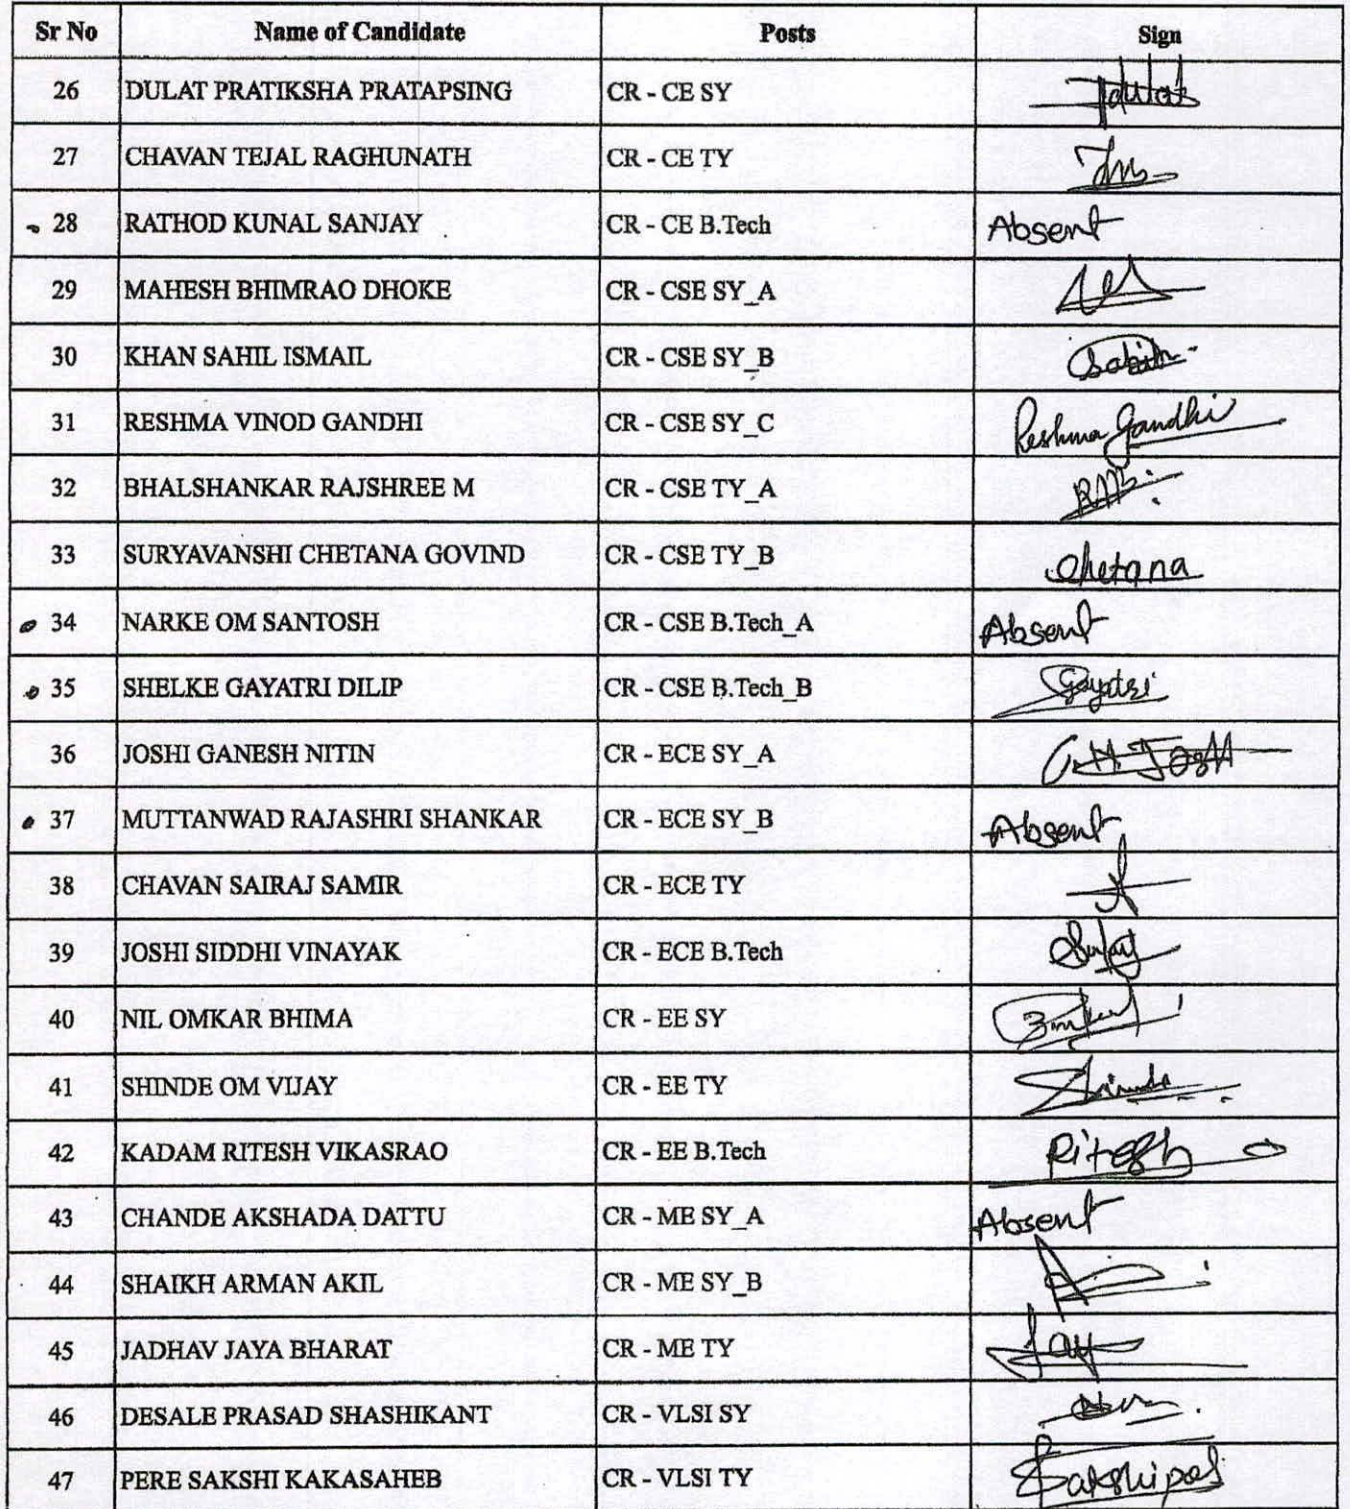 Sr No Name of Candidate Posts Sign
26 DULAT PRATIKSHA PRATAPSING CR - CE SY
27 CHAVAN TEJAL RAGHUNATH CR - CE TY
28 RATHOD KUNAL SANJAY CR - CE B.Tech Absent
29 MAHESH BHIMRAO DHOKE CR - CSE SY_A
30 KHAN SAHIL ISMAIL CR - CSE SY_B
31 RESHMA VINOD GANDHI CR - CSE SY_C Reshma Gandhi
32 BHALSHANKAR RAJSHREE M CR - CSE TY_A
33 SURYAVANSHI CHETANA GOVIND CR - CSE TY_B Chetana
34 NARKE OM SANTOSH CR - CSE B.Tech_A Absent
35 SHELKE GAYATRI DILIP CR - CSE B.Tech_B Gayatri
36 JOSHI GANESH NITIN CR - ECE SY_A
37 MUTTANWAD RAJASHRI SHANKAR CR - ECE SY_B Absent
38 CHAVAN SAIRAJ SAMIR CR - ECE TY
39 JOSHI SIDDHI VINAYAK CR - ECE B.Tech
40 NIL OMKAR BHIMA CR - EE SY
41 SHINDE OM VIJAY CR - EE TY
42 KADAM RITESH VIKASRAO CR - EE B.Tech Ritesh
43 CHANDE AKSHADA DATTU CR - ME SY_A Absent
44 SHAIKH ARMAN AKIL CR - ME SY_B
45 JADHAV JAYA BHARAT CR - ME TY
46 DESALE PRASAD SHASHIKANT CR - VLSI SY
47 PERE SAKSHI KAKASAHEB CR - VLSI TY